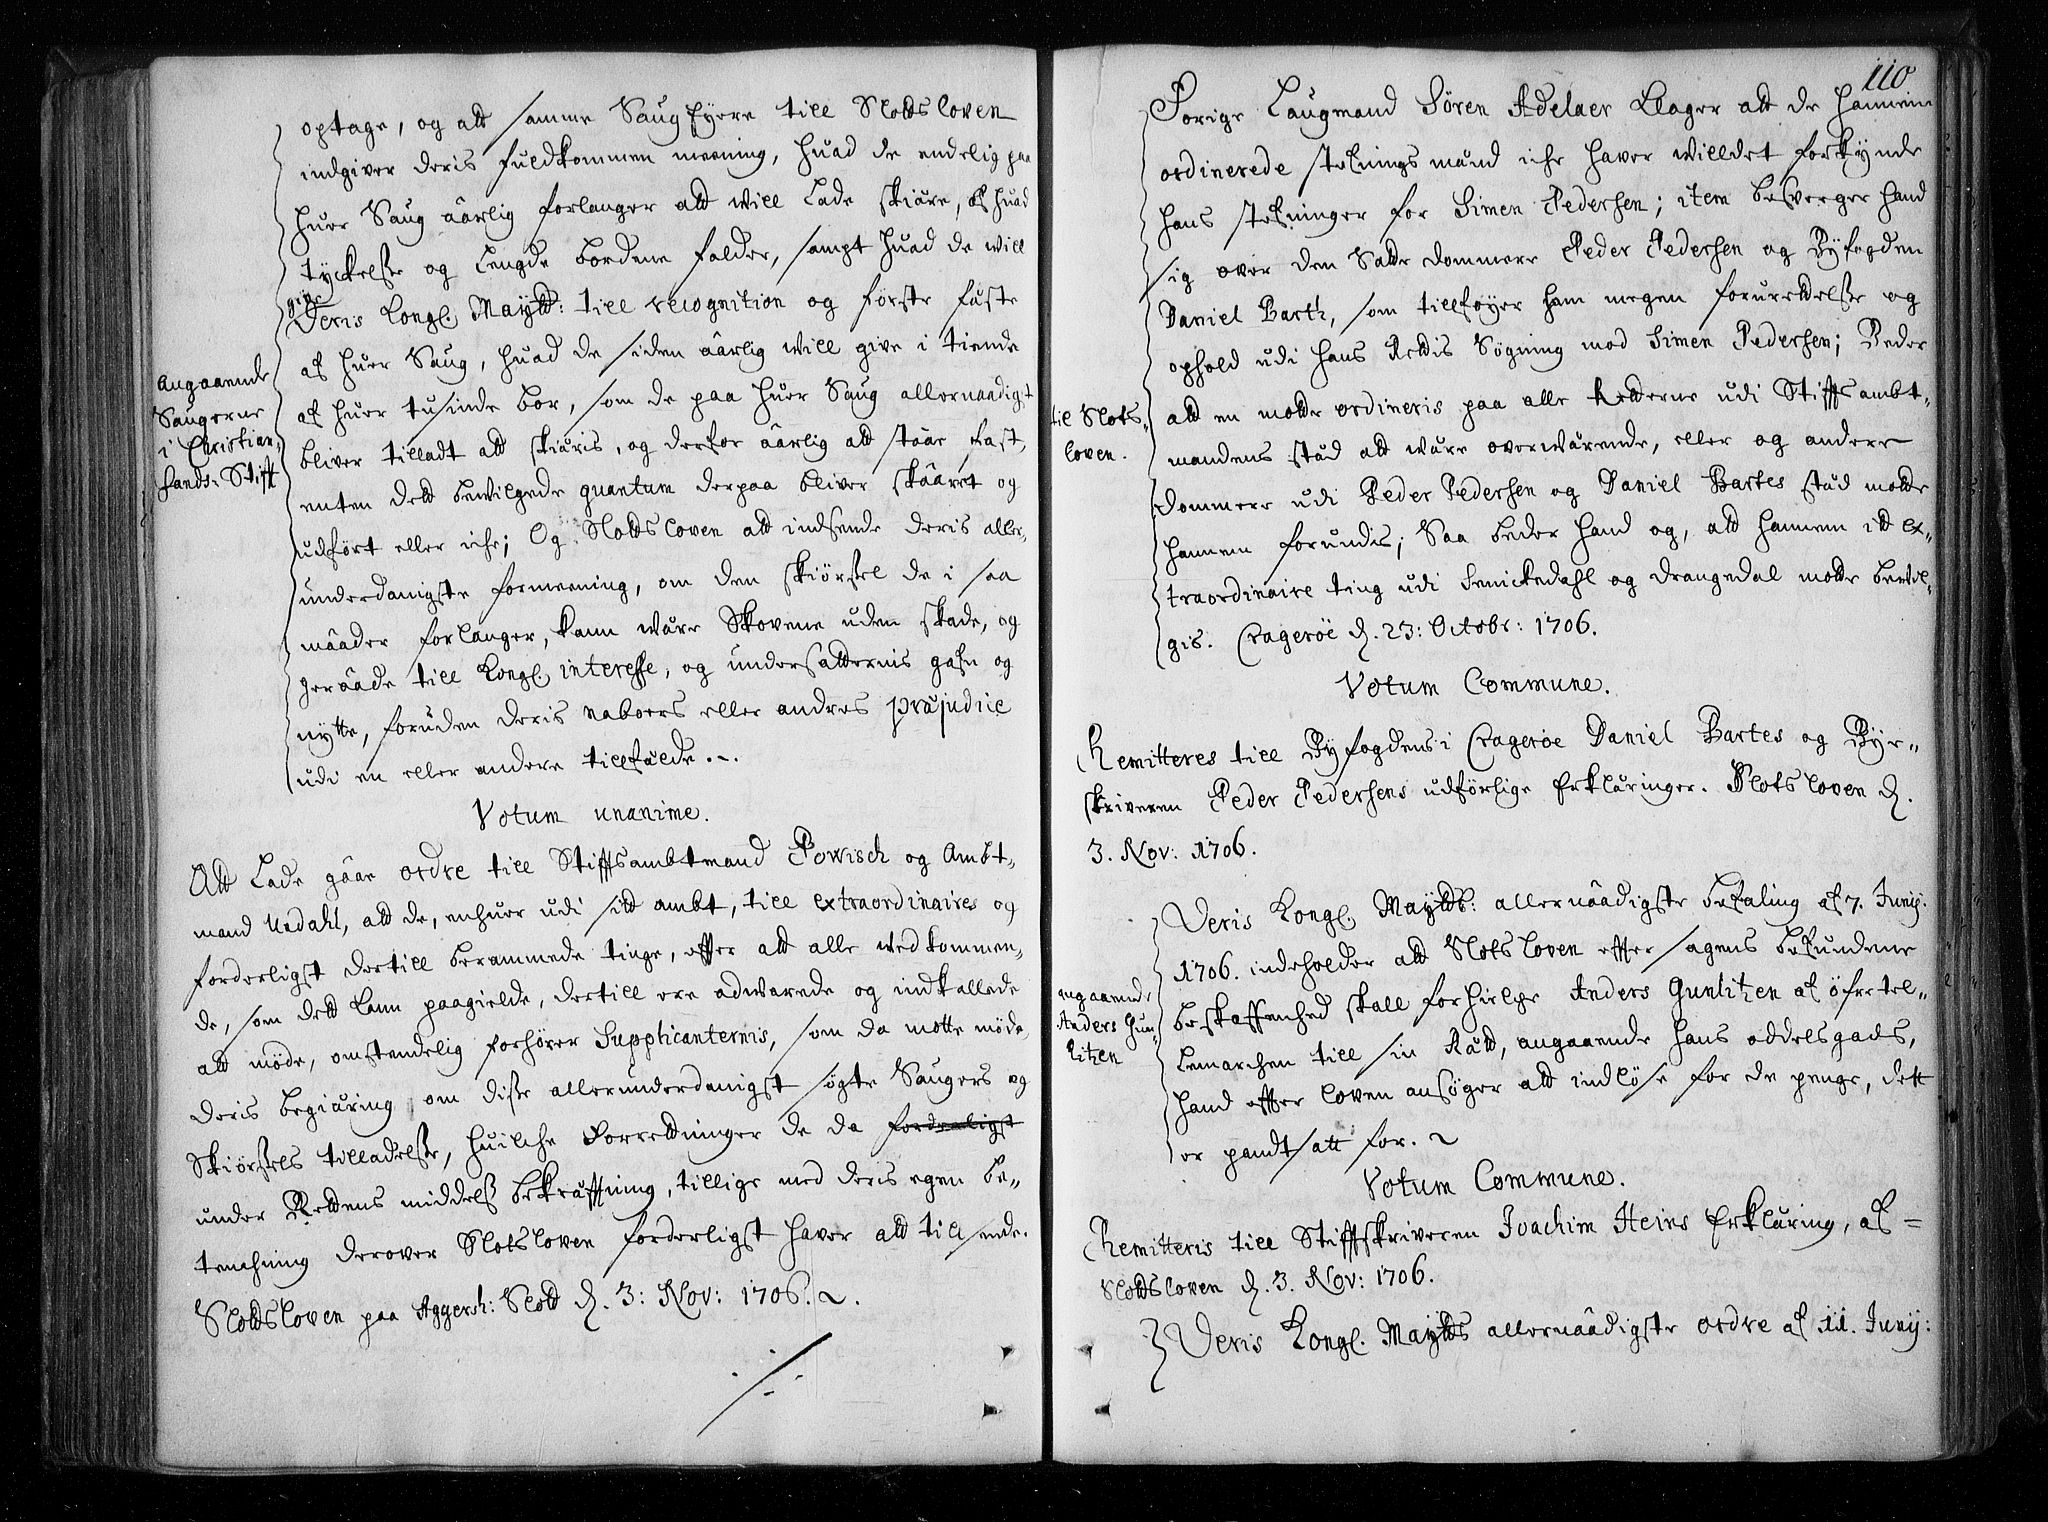 optage, og att samme Saugeyere till Slodsloven
indgiver deris fuldkommen meening, huad de endelig paa
huer Saug äarlig forlanger att will lade skiäre, af huad
tyckelsse og Lengde bordene falder, sampt huad de will
give
Deris Kongl. Maytt: till recognition og første fäste
af huer Saug, huad de siden äarlig will give i tiende
af huer tusinde bor, som de paa huer Saug allernaadigst
bliver tilladt att skiäris, og derfor äarlig att stäae fast,
enten dett bevilgede quantum derpaa bliver skäaret og
udført eller iche; Og Slodsloven att indsende deris aller-
underdanigste formeening, om den skiørssel de i saa
mäader forlanger, kann wäre Skovene uden skade, og
geräade till Kongl. interesse, og undersatternis gafn og
nytte, foruden deris naboers eller andres præjudice
udi en eller andere tillfälde.
Angaaende
Saugerne
i Christian-
sands-Stift
Votum unanime.
Att Lade gäae ordre till Stiftsambtmand Powisch og Ambt-
mand Undahl, att de, enhuer udi sitt ambt, till extraordinaires og
forderligst dertill berammede tinge, effter att alle vedkommen-
de, som dett kann paagielde, dertill ere advarede og indkallede
att møde, omstendelig forhører Supplicanternis, som da motte møde,
deris begiäring om disse allerunderdanigst søgte Saugers og
Skiørssels tilladelsse, huilche Forrettninger de da forderligst
under Rettens middels bekräfftning, tillige med deris egen be-
tenchning derover Slotsloven forderligst haver att tilsende.
Slodsloven paa Aggersh: Slott d. 3: Nov: 1706.
110
Forige Laugmand Søren Adelaer klager att de hannem
ordinerede stefningsmänd iche haver willdet forkynde
hans stefninger for Simen Pedersen; item besverger hand
sig over den Satte dommere Peder Pedersen og Byfogden
Daniel Bartz, som tillføyer ham megen forurettelsse og
ophold udi hans Rettis Søgning mod Simen Pedersen; Beder
att en motte ordineris paa alle Retterne udi Stiftsambt-
mandens städ att wäre overwärende, eller og andere
dommere udi Peder Pedersen og Daniel Bartes städ motte
hannem forundis; Saa beder hand og, att hannem itt ex-
traordinaire ting udi Senickedahl og Drangedal motte bevil-
gis. Cragerøe d. 23: Octobr: 1706.
til Slots-
loven.
Votum Commune.
Remitteres till Byfogdens i Cragerøe Daniel Bartes og Byе-
skriveren Peder Pedersens udførlige Erkläringer. Slotsloven d.
3. Nov: 1706.
Deris Kongl. Maytts: allernäadigste befaling af 7. Junij.
1706. indeholder att Slotsloven effter sagens befundene
beskaffenhed skall forhielpe Anders Guntitzen af øfretel-
Lemarchen till sin Rätt, angaaende hans oddelsgads,
hand effter loven ansøger att indløse for de penge, dett
er pandtsatt for.
angaaende
Anders Gun-
titzen
Votum Commune.
Remitteris till Stifftskriveren Joachim Heins Erkläring, af
Slodsloven d. 3. Nov: 1706.
Deris Kongl. Maytts allernäadigste ordre af 11. Junij: